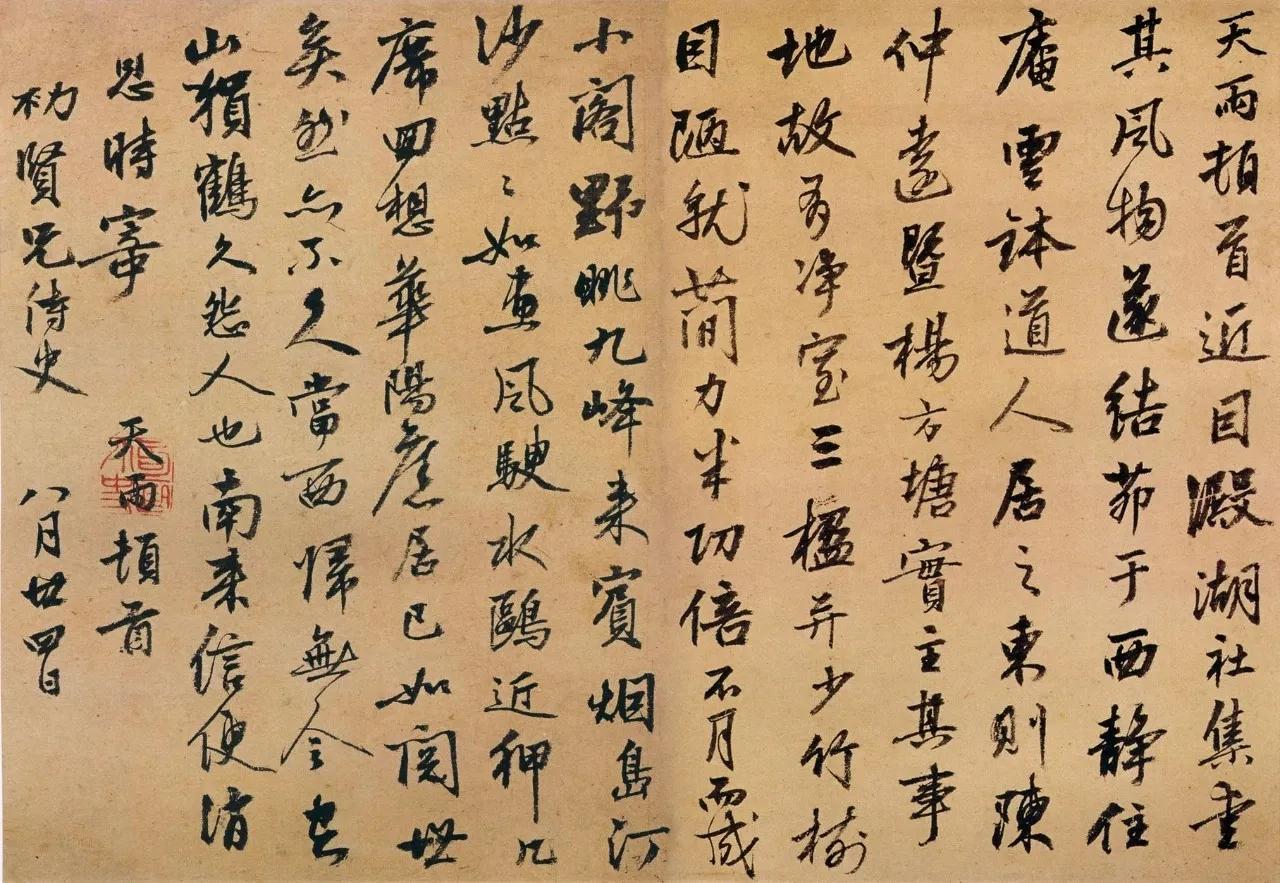 天雨頓首近囙澱湖社集喜
其風物遂結茆于西靜住
庵雲鉢道人居之東則陳
仲遠暨楊方塘實主其事
地故有淨室三楹并少竹樹
囙陋就簡力半功倍不月而成
小閣野眺九峰来賓烟島汀
沙點〻如畫風駛水鷗近狎几
席回想華陽舊居已如閱世
矣然亦不久當西歸無令空
山猿鶴久怨人也南来信便消
息時寄 天雨頓首
賢兄侍史 八月廿四日